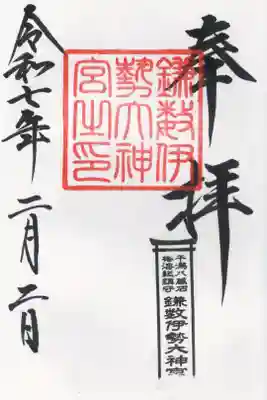 奉拝
鎌数伊
勢大神
宮之印
干潟八萬石
椿海総鎮守
鎌数伊勢大神宮
令和七年 二月二日